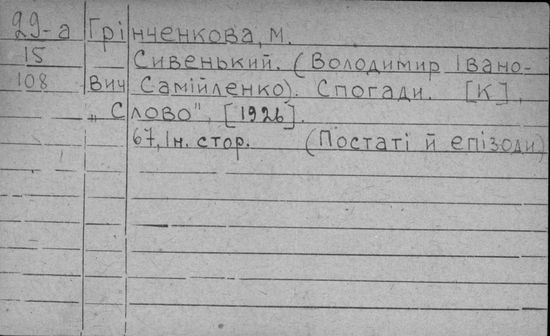 29-а Грінченкова, М.
15 Сивенький. (Володимир Івано-
108 вич Самійленко). Спогади. [К],
„Слово", [1926].
67, Iн. стор. (Постаті й епізоди)